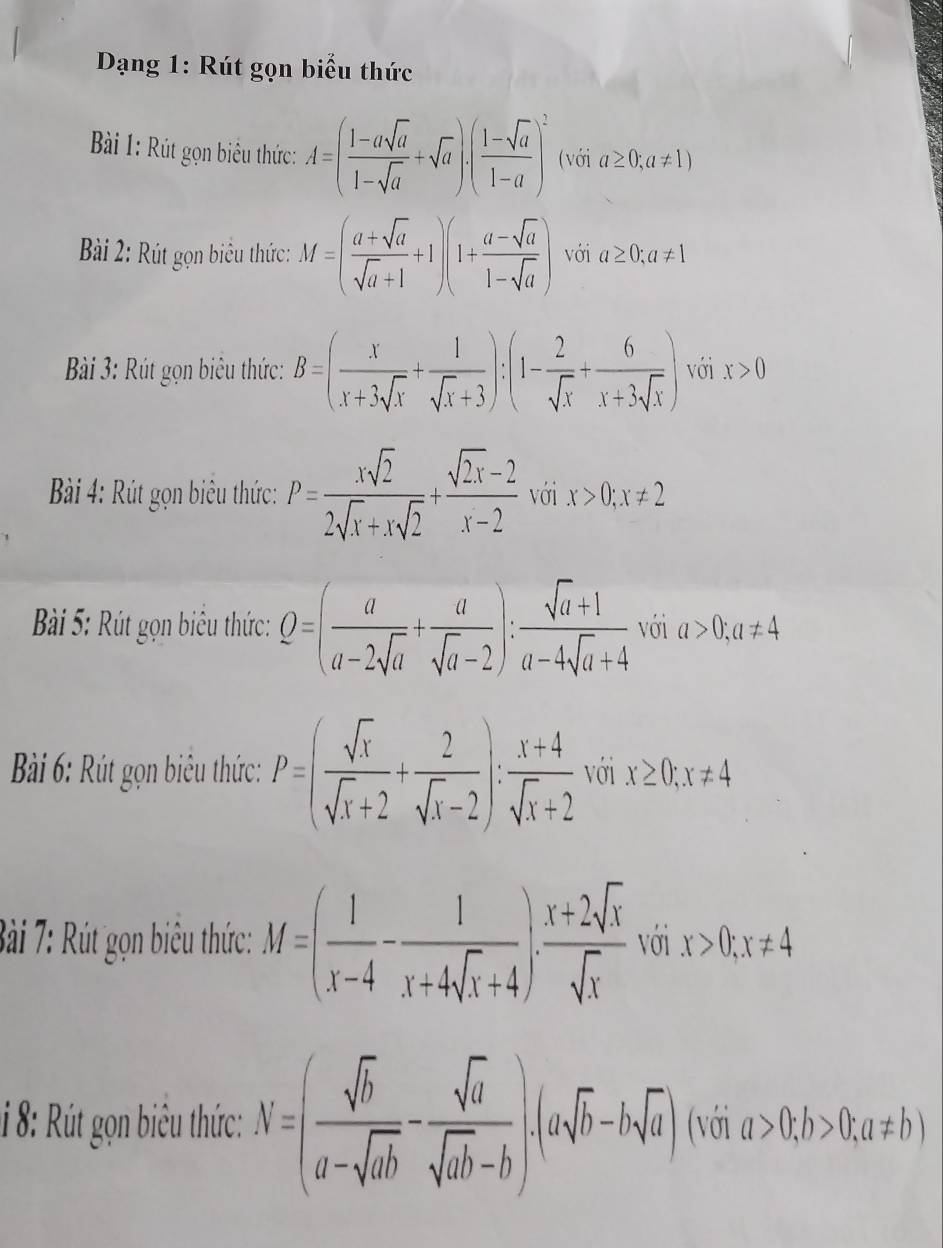 Dạng 1: Rút gọn biểu thức
Bài 1: Rút gọn biểu thức: $A = \left( \frac{1-a\sqrt{a}}{1-\sqrt{a}} + \sqrt{a} \right) . \left( \frac{1-\sqrt{a}}{1-a} \right)^2$ (với $a \ge 0; a \ne 1$)
Bài 2: Rút gọn biểu thức: $M = \left( \frac{a+\sqrt{a}}{\sqrt{a}+1} + 1 \right) \left( 1 + \frac{a-\sqrt{a}}{1-\sqrt{a}} \right)$ với $a \ge 0; a \ne 1$
Bài 3: Rút gọn biểu thức: $B = \left( \frac{x}{x+3\sqrt{x}} + \frac{1}{\sqrt{x}+3} \right) : \left( 1 - \frac{2}{\sqrt{x}} + \frac{6}{x+3\sqrt{x}} \right)$ với $x > 0$
Bài 4: Rút gọn biểu thức: $P = \frac{x\sqrt{2}}{2\sqrt{x}+x\sqrt{2}} + \frac{\sqrt{2x}-2}{x-2}$ với $x > 0; x \ne 2$
Bài 5: Rút gọn biểu thức: $Q = \left( \frac{a}{a-2\sqrt{a}} + \frac{a}{\sqrt{a}-2} \right) : \frac{\sqrt{a}+1}{a-4\sqrt{a}+4}$ với $a > 0; a \ne 4$
Bài 6: Rút gọn biểu thức: $P = \left( \frac{\sqrt{x}}{\sqrt{x}+2} + \frac{2}{\sqrt{x}-2} \right) : \frac{x+4}{\sqrt{x}+2}$ với $x \ge 0; x \ne 4$
Bài 7: Rút gọn biểu thức: $M = \left( \frac{1}{x-4} - \frac{1}{x+4\sqrt{x}+4} \right) . \frac{x+2\sqrt{x}}{\sqrt{x}}$ với $x > 0; x \ne 4$
i 8: Rút gọn biểu thức: $N = \left( \frac{\sqrt{b}}{a-\sqrt{ab}} - \frac{\sqrt{a}}{\sqrt{ab}-b} \right) . \left( a\sqrt{b} - b\sqrt{a} \right)$ (với $a > 0; b > 0; a \ne b$)